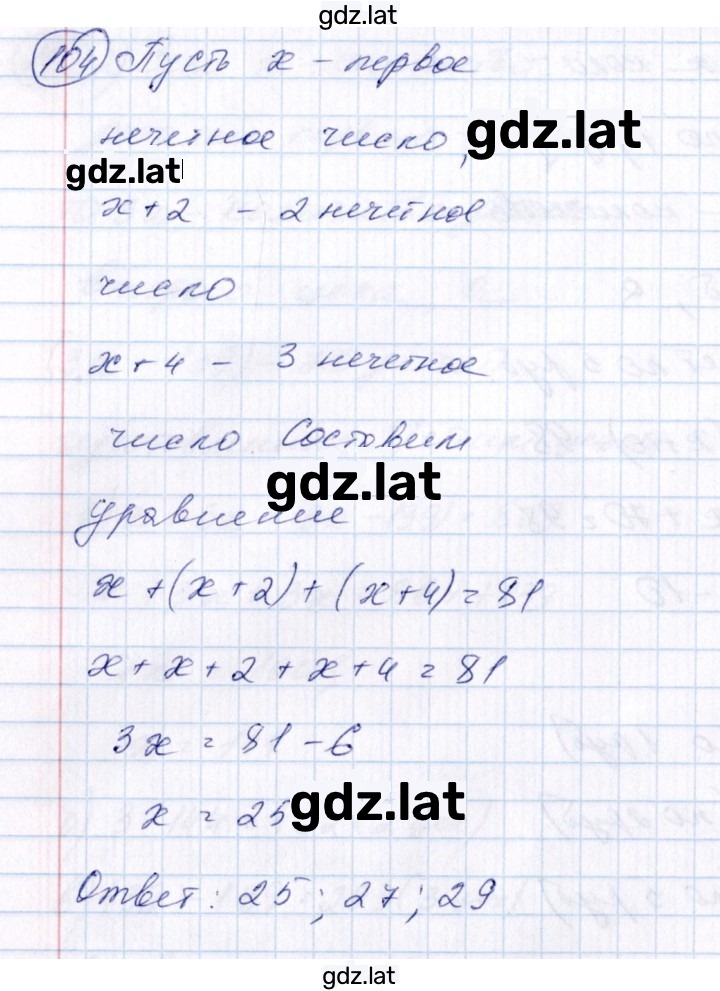 gdz.lat
104 Пусть x - первое
нечетное число, gdz.lat
gdz.lat
x + 2 - 2 нечетное
число
x + 4 - 3 нечетное
число Составим
gdz.lat
уравнение
x + (x + 2) + (x + 4) = 81
x + x + 2 + x + 4 = 81
3x = 81 - 6
x = 25 gdz.lat
Ответ: 25; 27; 29
gdz.lat